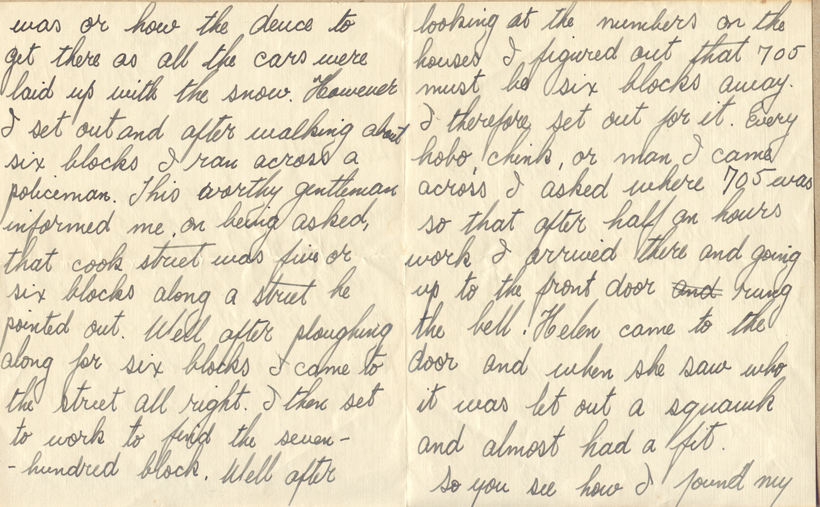 was or how the deuce to
get there as all the cars were
laid up with the snow. However
I set out and after walking about
six blocks I ran across a
policeman. This worthy gentleman
informed me, on being asked,
that cook street was five or
six blocks along a street he
pointed out. Well after ploughing
along for six blocks I came to
the street all right. I then set
to work to find the seven-
-hundred block. Well after
looking at the numbers on the
houses I figured out that 705
must be six blocks away.
I therefore set out for it. Every
hobo, chink, or man I came
across I asked where 705 was
so that after half an hours
work I arrived there and going
up to the front door and rung
the bell. Helen came to the
door and when she saw who
it was let out a squawk
and almost had a fit.
So you see how I found my